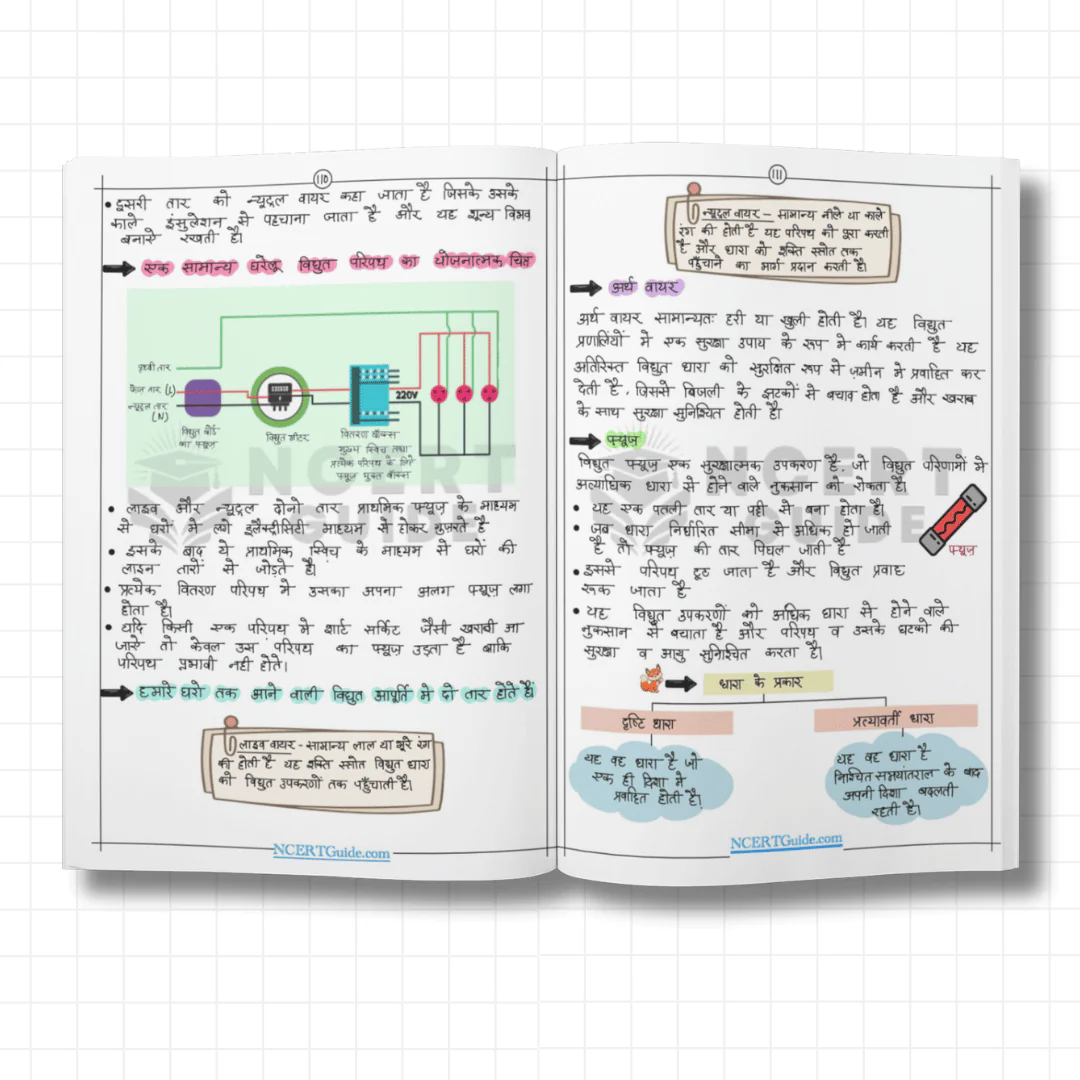 110
• दूसरी तार को न्यूट्रल वायर कहा जाता है जिसके उसके
काले इंसुलेशन से पहचाना जाता है और यह शून्य विभव
बनाये रखती है।
एक सामान्य घरेलू विधुत परिपथ का योजनात्मक चित्र
पृथ्वी तार
फेज तार (L)
न्यूट्रल तार
(N)
220V
विधुत बोर्ड
का फ्यूज
विधुत मीटर
वितरण बॉक्स
मुख्य स्विच तथा
प्रत्येक परिपथ के लिये
फ्यूज युक्त बॉक्स
• लाइव और न्यूट्रल दोनो तार प्राथमिक फ्यूज के माध्यम
से घरों में लगे इलैक्ट्रीसिटी माध्यम से होकर गुजरते है
• इसके बाद ये प्राथमिक स्विच के माध्यम से घरों की
लाइन तारों से जोड़ते है।
• प्रत्येक वितरण परिपथ मे उसका अपना अलग फ्यूज़ लगा
होता है।
• यदि किसी एक परिपथ मे शार्ट सर्किट जैसी खराबी आ
जाए तो केवल उस परिपथ का फ्यूज़ उड़ता है बाकि
परिपथ प्रभावी नही होते।
हमारे घरो तक आने वाली विधुत आपूर्ति मे दो तार होते है।
लाइव वायर - सामान्य लाल या भूरे रंग
की होती है यह शक्ति स्त्रोत विधुत धारा
को विधुत उपकरणों तक पहुँचाती है।
NCERTGuide.com
111
न्यूट्रल वायर - सामान्य नीले या काले
रंग की होती है यह परिपथ को पूरा करती
है और धारा को शक्ति स्त्रोत तक
पहुँचाने का मार्ग प्रदान करती है।
अर्थ वायर
अर्थ वायर सामान्यतः हरी या खुली होती है। यह विधुत
प्रणालियों मे एक सुरक्षा उपाय के रूप मे कार्य करती है यह
अतिरिक्त विधुत धारा को सुरक्षित रूप से ज़मीन मे प्रवाहित कर
देती है, जिससे बिजली के झटकों से बचाव होता है और खराब
के साथ सुरक्षा सुनिश्चित होती है।
फ्यूज़
विधुत फ्यूज़ एक सुरक्षात्मक उपकरण है, जो विधुत परिणामो मे
अत्याधिक धारा से होने वाले नुकसान को रोकता है।
• यह एक पतली तार या पट्टी से बना होता है।
• जब धारा निर्धारित सीमा से अधिक हो जाती
है तो फ्यूज़ की तार पिघल जाती है
फ्यूज़
• इससे परिपथ टूठ जाता है और विधुत प्रवाह
रूक जाता है
• यह विधुत उपकरणों को अधिक धारा से होने वाले
नुकसान से बचाता है और परिपथ व उसके घटको की
सुरक्षा व आयु सुनिश्चित करता है।
धारा के प्रकार
दृष्टि धारा
प्रत्यावर्ती धारा
यह वह धारा है जो
एक ही दिशा मे
प्रवाहित होती है।
यह वह धारा है
निश्चित समयांतराल के बाद
अपनी दिशा बदलती
रहती है।
NCERTGuide.com
NCERT
GUIDE
NCERT
GUIDE